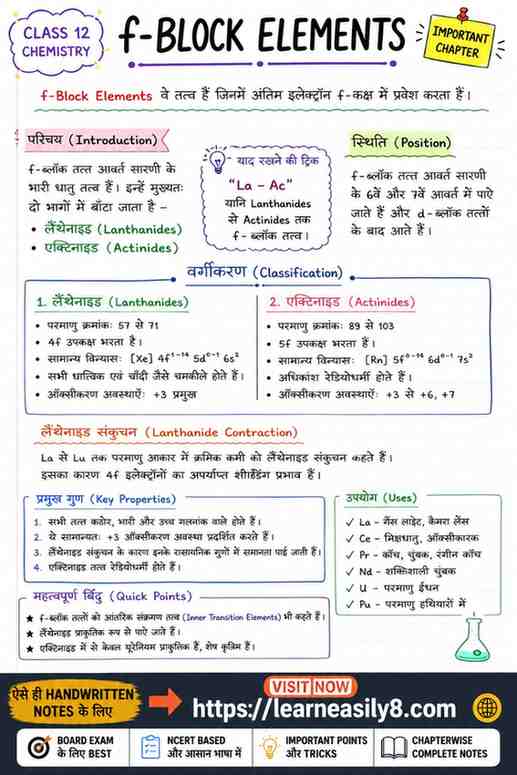 CLASS 12
CHEMISTRY
f-BLOCK ELEMENTS
IMPORTANT
CHAPTER
f-Block Elements वे तत्व हैं जिनमें अंतिम इलेक्ट्रॉन f-कक्ष में प्रवेश करता है।
परिचय (Introduction)
f-ब्लॉक तत्त आवर्त सारणी के
भारी धातु तत्व हैं। इन्हें मुख्यतः
दो भागों में बाँटा जाता है –
• लैंथेनाइड (Lanthanides)
• एक्टिनाइड (Actinides)
याद रखने की ट्रिक
"La – Ac"
यानि Lanthanides
से Actinides तक
f-ब्लॉक तत्व।
स्थिति (Position)
f-ब्लॉक तत्व आवर्त सारणी
के 6वें और 7वें आवर्त में पाऐ
जाते हैं और d-ब्लॉक तत्तों
के बाद आते हैं।
वर्गीकरण (Classification)
1. लैंथेनाइड (Lanthanides)
• परमाणु क्रमांक: 57 से 71
• 4f उपकक्ष भरता है।
• सामान्य विन्यास: [Xe] 4f¹⁻¹⁴ 5d⁰⁻¹ 6s²
• सभी धात्विक एवं चाँदी जैसे चमकीले होते हैं।
• ऑक्सीकरण अवस्थाएँ: +3 प्रमुख
2. एक्टिनाइड (Actiinides)
• परमाणु क्रमांक: 89 से 103
• 5f उपकक्ष भरता हैं।
• सामान्य विन्यास: [Rn] 5f⁰⁻¹⁴ 6d⁰⁻¹ 7s²
• अधिकांश रेडियोधर्मी होते हैं।
• ऑक्सीकरण अवस्थाएँ: +3 से +6, +7
लैंथेनाइड संकुचन (Lanthanide Contraction)
La से Lu तक परमाणु आकार में क्रमिक कमी को लैंथेनाइड संकुचन कहते हैं।
इसका कारण 4f इलेक्ट्रॉनों का अपर्याप्त प्रभाव हैं।
प्रमुख गुण (Key Properties)
1. सभी तत्त कठोर, भारी और उच्च गलनांक वाले होते हैं।
2. ये सामान्यतः +3 ऑक्सीकरण अवस्था प्रदर्शित करते हैं।
3. लैंथेनाइड संकुचन के कारण इनके रासायनिक गुणों में समानता पाई जाती हैं।
4. एक्टिनाइड तत्व रेडियोधर्मी होते हैं।
उपयोग (Uses)
✓ La – गैस लाइट, कैमरा लेंस
✓ Ce – मिश्रधातु, ऑक्सीकारक
✓ Pr – काँच, चुंबक, रंगीन काँच
✓ Nd – शक्तिशाली चुंबक
✓ U – परमाणु ईंधन
✓ Pu – परमाणु हथियारों में
महत्वपूर्ण बिंदु (Quick Points)
★ f-ब्लॉक तत्तों को आंतरिक संक्रमण तत्व (Inner Transition Elements) भी कहते हैं।
★ लैंथेनाइड प्राकृतिक रूप से पाऐ जाते हैं।
★ एक्टिनाइड में से केवल यूरेनियम प्राकृतिक हैं, शेष कृत्रिम हैं।
ऐसे ही HANDWRITTEN
NOTES के लिए
VISIT NOW
https://learneasily8.com
BOARD EXAM
के लिए BEST
NCERT BASED
और आसान भाषा में
IMPORTANT POINTS
और TRICKS
CHAPTERWISE
COMPLETE NOTES